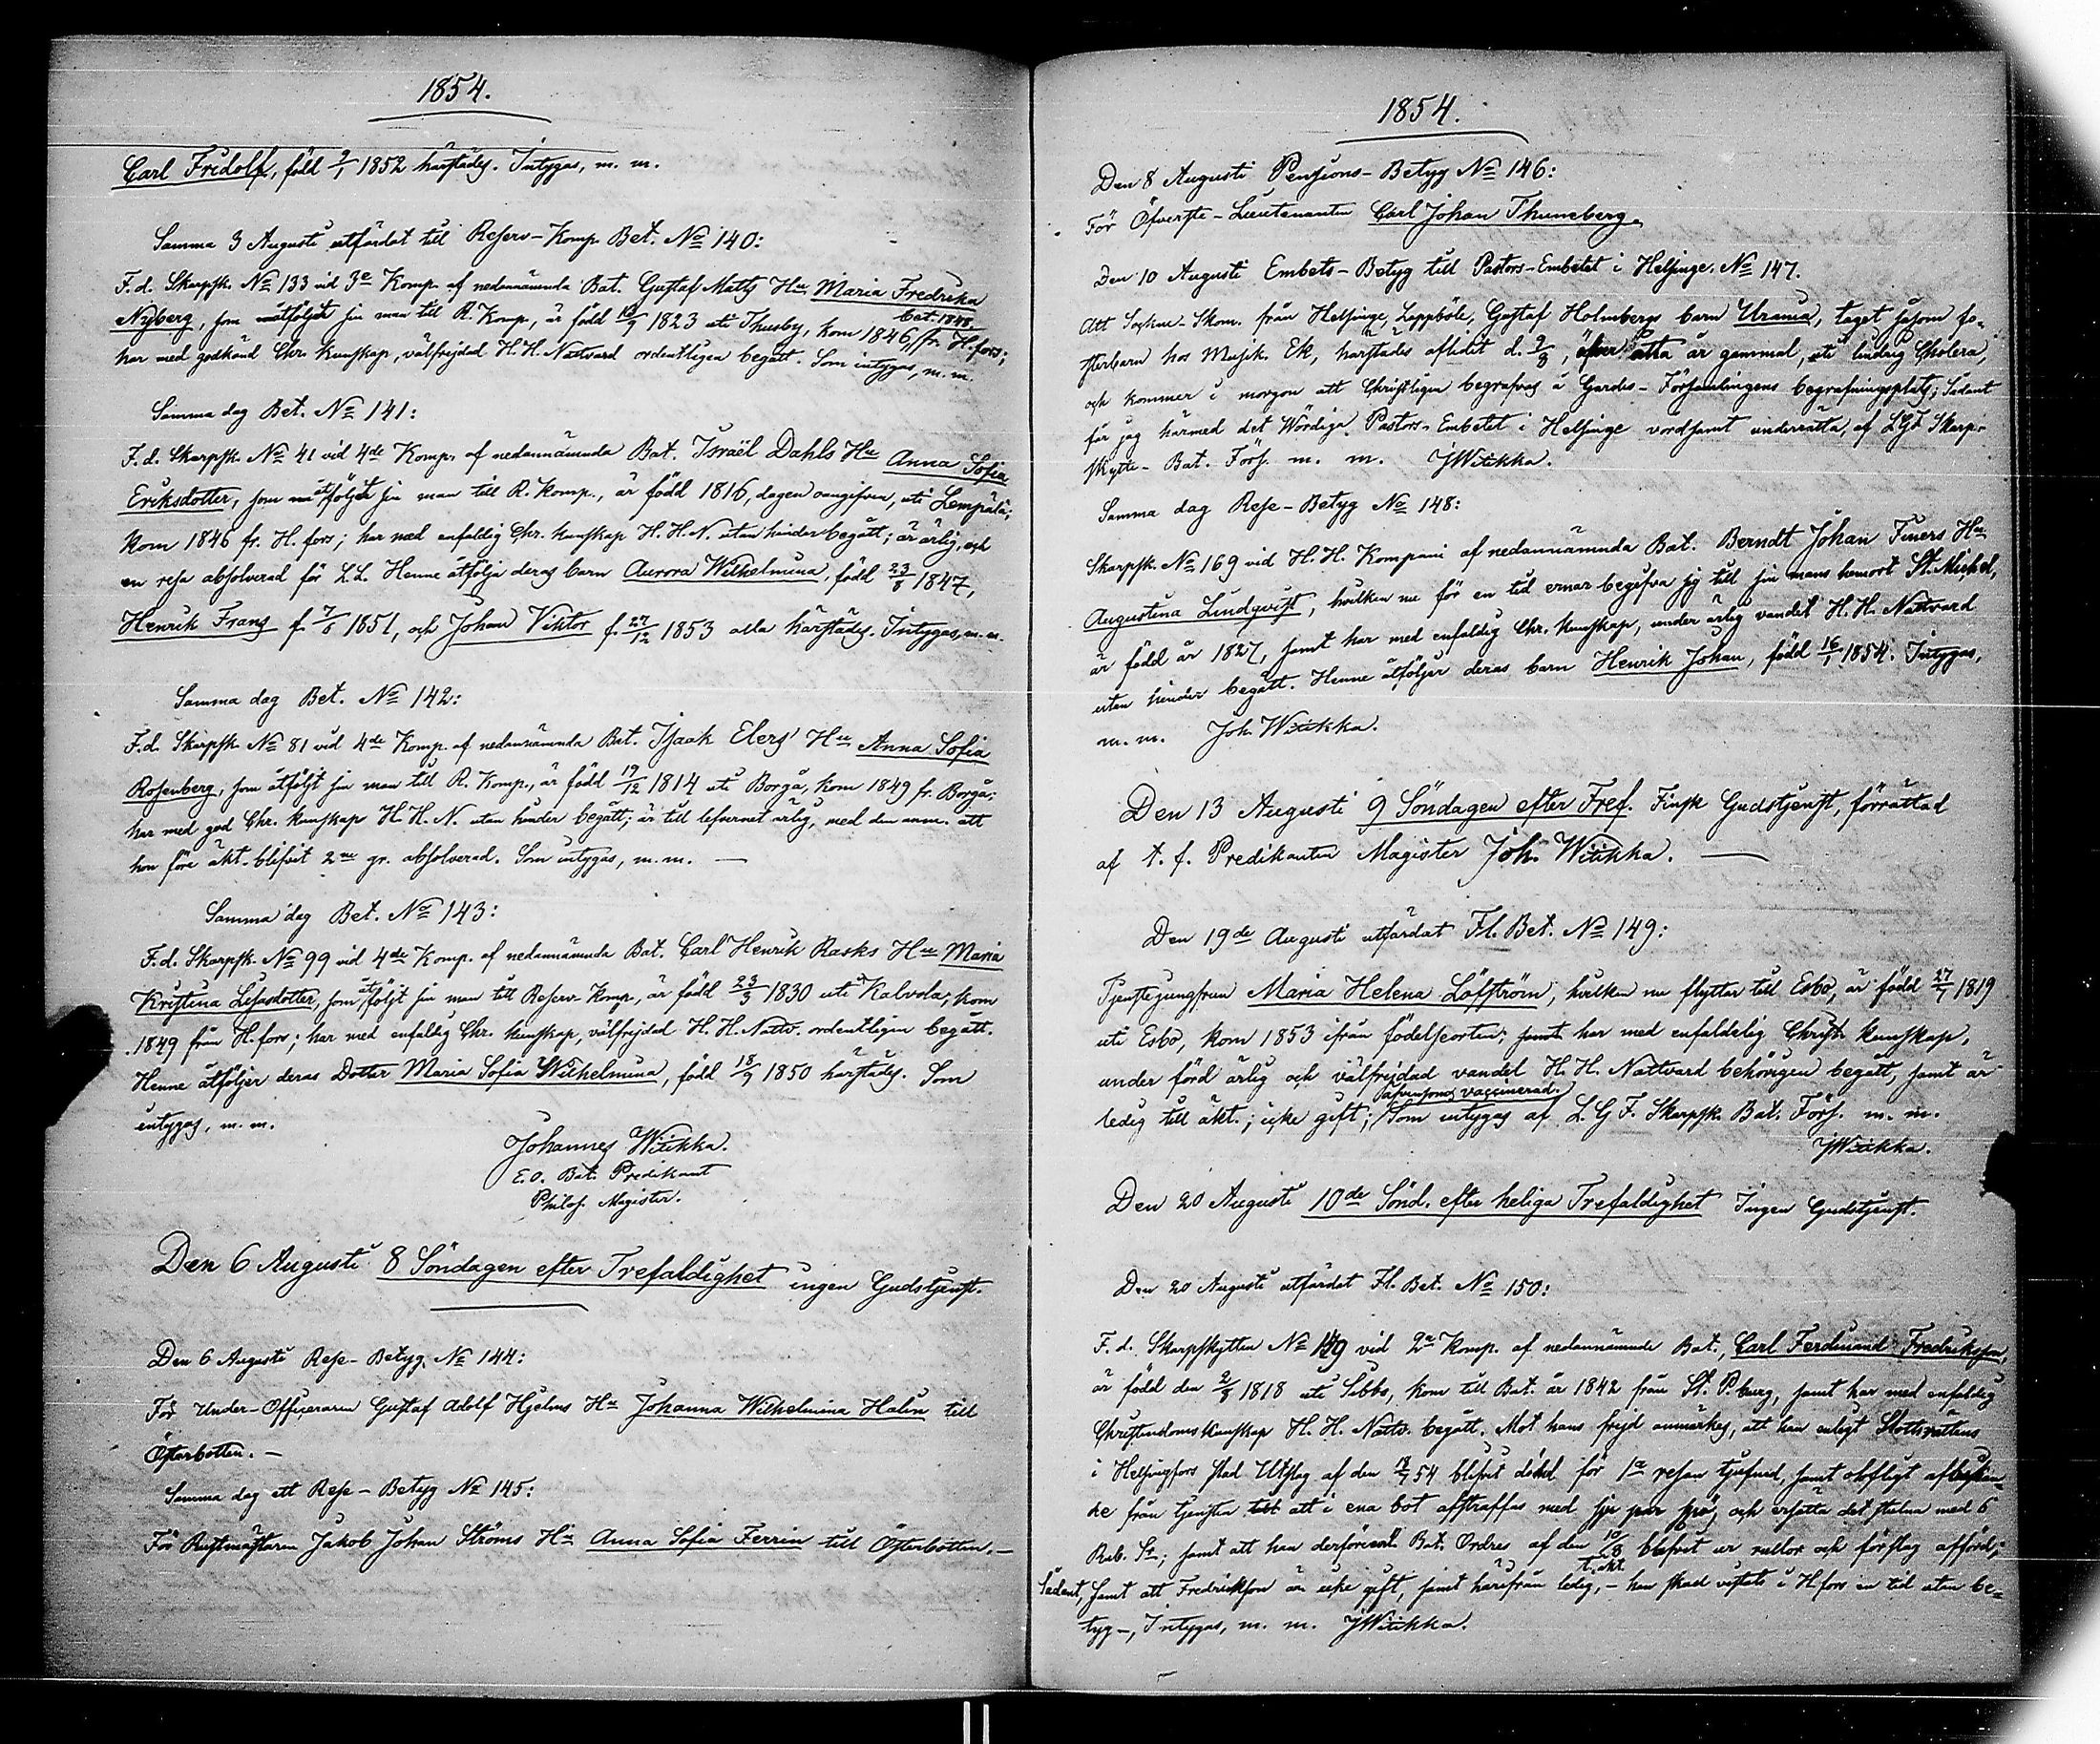 1854.
Carl Fridolf, född 9/1 1852 härstädes. Intygas, m. m.
Samma 3 Augusti utfärdat till Reserv-Komp. Bet. No 140:
F. d. Skarpsk. No 133 vid 3e Komp. af nedannämnda Bat. Gustaf Matts Hu Maria Fredrika
Nyberg, som åtföljt sin man till R. Komp., är född 1823 uti Thusby, kom 1846, bat. 1848. fr. H.fors;
har med godkänd Chr. kunskap, välfrejdad H. H. Nattvard ordentligen begått. Som intygas, m. m.
Samma dag Bet. No 141:
F. d. Skarpsk. No 41 vid 4de Komp. af nedannämnda Bat. Israël Dahls Hu Anna Sofia
Eriksdotter, som åtföljt sin man till R. Komp., är född 1816, dagen oangifven, uti Lempälä;
kom 1846 fr. H. fors; har med enfaldig Chr. kunskap H. H. N. utan hinder begått; är ärlig, och
en resa absolverad för L. L. Henne åtfölja deras barn Aurora Wilhelmina, född 23/8 1847,
Henrik Frans f. 1851, och Johan Viktor f. 27/12 1853 alla härstädes. Intygas, m. m.
Samma dag Bet. No 142:
F. d. Skarpsk. No 81 vid 4de Komp. af nedannämnda Bat. Isaak Elers' Hu Anna Sofia
Rosenberg, som åtföljt sin man till R. Komp., är född 19/12 1814 uti Borgå, kom 1849 fr. Borgå;
har med god Chr. kunskap H. H. N. utan hinder begått; är till lefvernet ärlig, med den anm. att
hon före äkt. blifvit 2ne gr. absolverad. Som intygas, m. m. —
Samma dag Bet. No 143:
F. d. Skarpsk. No 99 vid 4de Komp. af nedannämnda Bat. Carl Henrik Rasks Hu Maria
Kristina Lisasdotter, som åtföljt sin man till Reserv-Komp., är född 23/3 1830 uti Kalvola; kom
1849 från H.fors; har med enfaldig Chr. kunskap, välfrejdad H. H. Nattv. ordentligen begått.
Henne åtföljer deras Dotter Maria Sofia Wilhelmina, född 18/9 1850 härstädes. Som
intygas, m. m.
Johannes Witikka.
E. O. Bat. Predikant
Philos. Magister.
Den 6 Augusti 8 Söndagen efter Trefaldighet ingen Gudstjenst.
Den 6 Augusti Rese-Betyg No 144:
För Under-Officeraren Gustaf Adolf Hjelms Hu Johanna Wilhelmina Halin till
Österbotten. —
Samma dag ett Rese-Betyg No 145:
För Rustmästaren Jakob Johan Ströms Hu Anna Sofia Ferrin till Österbotten. —
1854.
Den 8 Augusti Pensions-Betyg No 146:
För Öfverste-Lieutenanten Carl Johan Thuneberg.
Den 10 Augusti Embets-Betyg till Pastors-Embetet i Helsinge. No 147.
Att Sockne-Skom. från Helsinge, Loppböle, Gustaf Holmbergs barn Urania, taget såsom fo-
sterbarn hos Musik. Ek, härstädes aflidit d. 9/8, åtta år gammal, uti lindrig Cholera,
och kommer i morgon att Christligen begrafvas å Gardes-Församlingens begrafningsplats; Sådant
får jag härmed det Wördiga Pastors-Embetet i Helsinge vördsamt underrätta, af LGF Skarp-
skytte-Bat. Förs. m. m. JWitikka.
Samma dag Rese-Betyg No 148:
Skarpsk. No 169 vid H. H. Kompani af nedannämnda Bat. Berndt Johan Finers Hu
Augustina Lindqvist, hvilken nu för en tid ernar begifva sig till sin mans hemort St. Michel,
är född år 1827, samt har med enfaldig Chr. kunskap, under ärlig vandel H. H. Nattvard
utan hinder begått. Henne åtföljer deras barn Henrik Johan, född 16/1 1854. Intygas,
m. m. Joh. Witikka.
Den 13 Augusti 9 Söndagen efter Tref. Finsk Gudstjenst, förrättad
af t. f. Predikanten Magister Joh. Witikka. —
Den 19de Augusti utfärdat Fl. Bet. No 149:
Tjenstejungfrun Maria Helena Löfström, hvilken nu flyttar till Esbo, är född 27/7 1819
uti Esbo, kom 1853 ifrån födelseorten; samt har med enfaldelig Christ. kunskap,
under förd ärlig och välfrejdad vandel H. H. Nattvard behörigen begått, samt är
ledig till äkt.; icke gift; vaccinerad. Som intygas af L. G. F. Skarpsk. Bat. Förs. m. m.
JWitikka.
Den 20 Augusti 10de Sönd. efter heliga Trefaldighet Ingen Gudstjenst.
Den 20 Augusti utfärdat Fl. Bet. No 150:
F. d. Skarpskytten No 149 vid 2a Komp. af nedannämnde Bat., Carl Ferdinand Fredriksson,
är född den 2/8 1818 uti Sibbo, kom till Bat. år 1842 från St. P.burg, samt har med enfaldig
Christendoms kunskap H. H. Nattv. begått. Mot hans frejd anmärkes, att han enligt Slottsrättens
i Helsingfors stad Utslag af den 18/7 54 blifvit dömd för 1a resan tjufnad, samt olofligt
ke från tjensten att i ena bot afstraffas med sju par spö, och ersätta det stulna med 6
Rub. Sr; samt att han Bat. Ordres af den 10/8 blifvit ur rullor och förslag afförd;
Sådant, samt att Fredriksson är icke gift, samt härifrån ledig t. äkt., — han skall vistats i H.fors en tid utan be-
tyg —, Intygas, m. m. JWitikka.